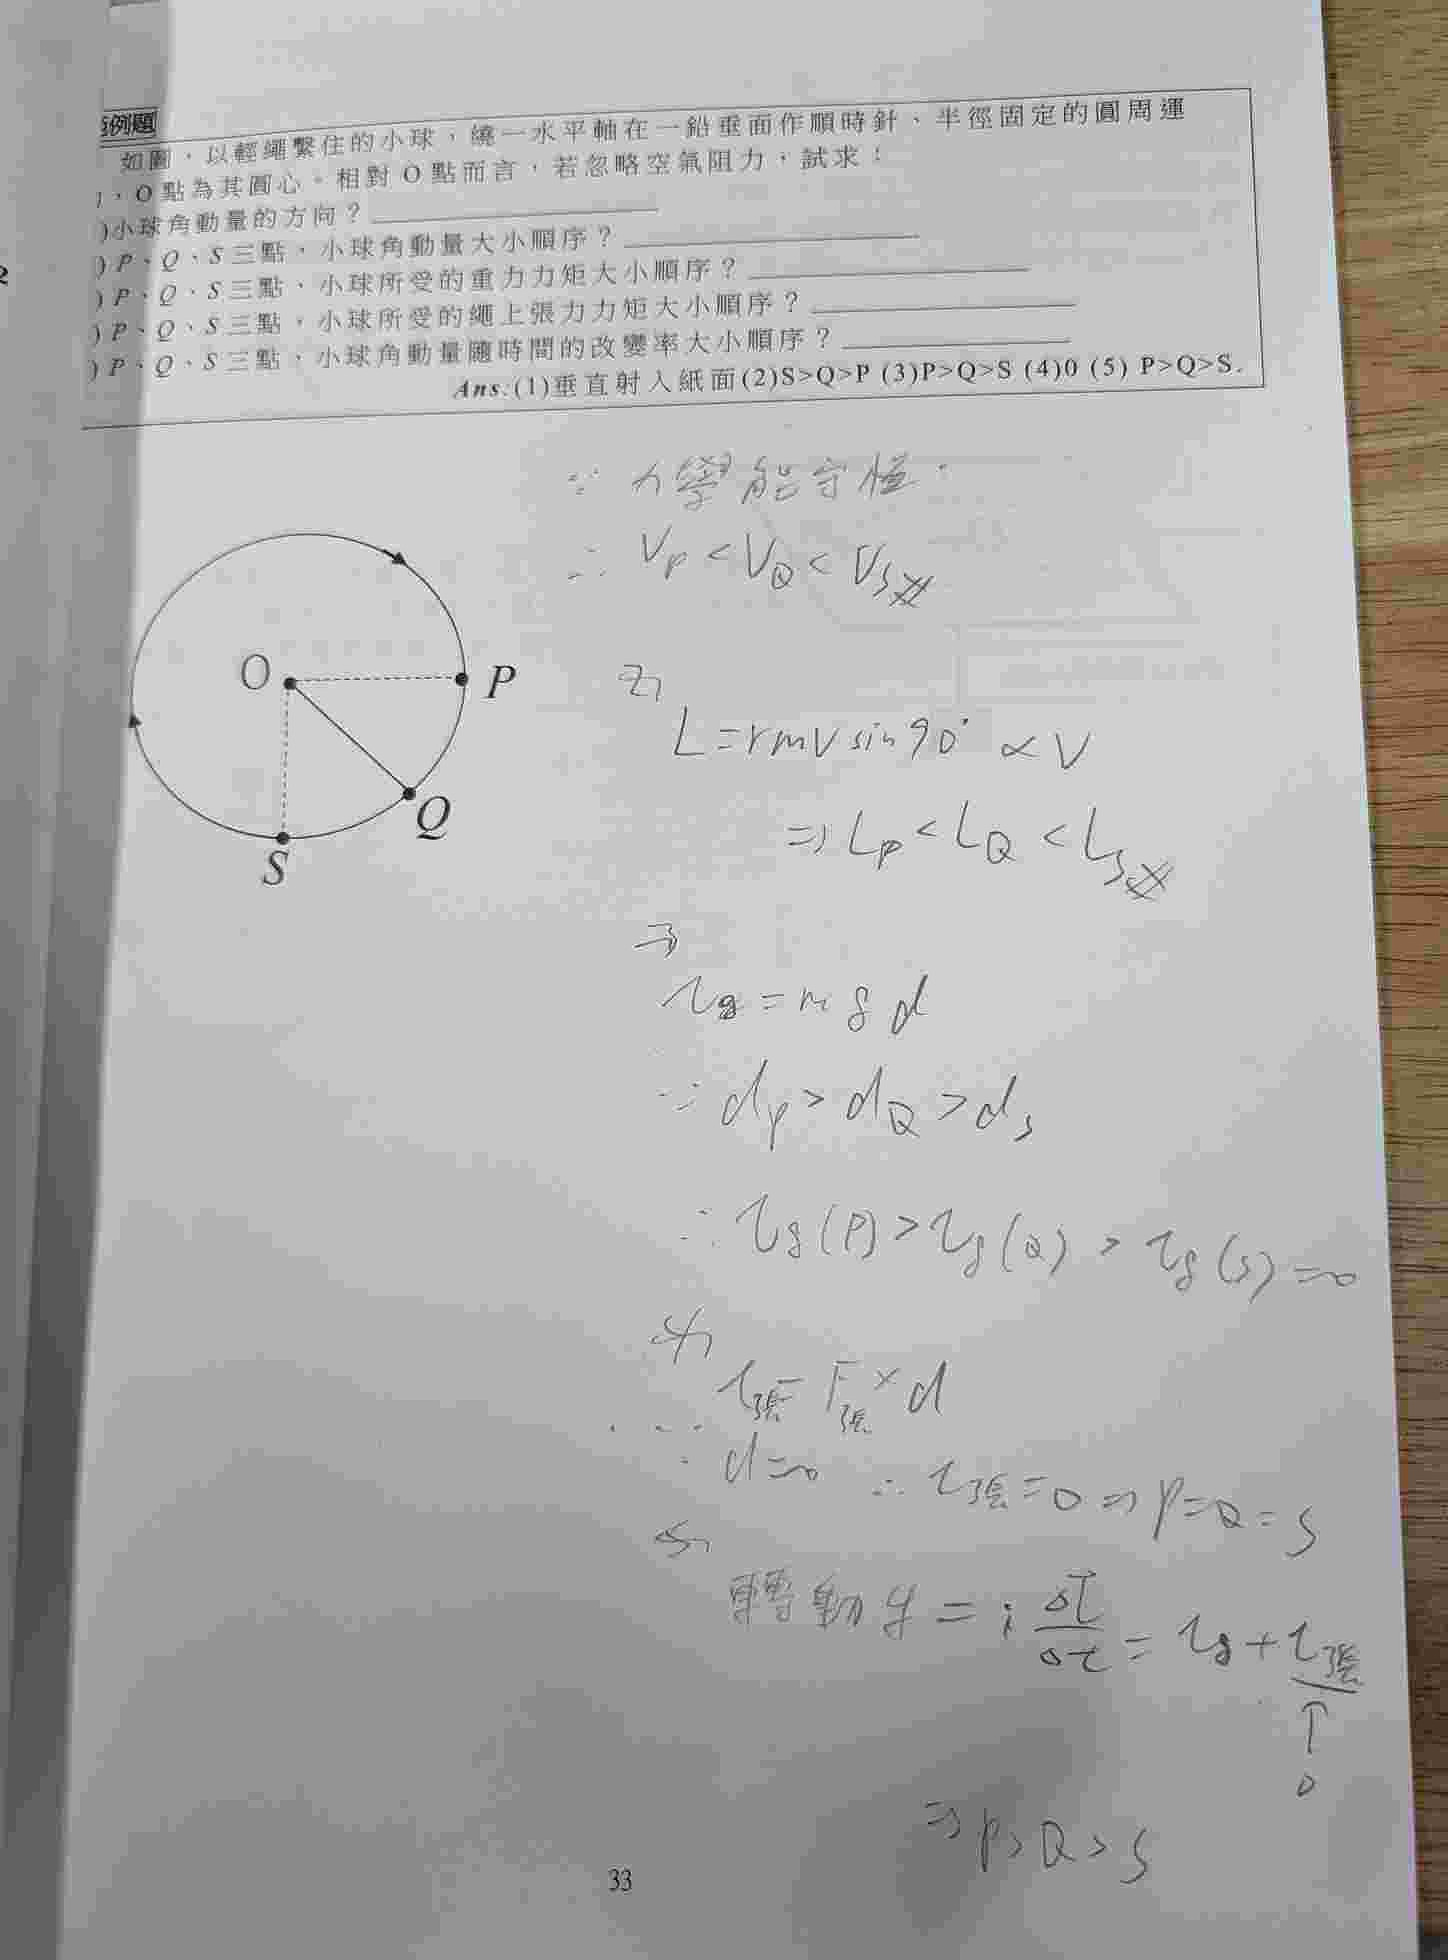 範例題
如圖，以輕繩繫住的小球，繞一水平軸在一鉛垂面作順時針、半徑固定的圓周運
，O點為其圓心。相對O點而言，若忽略空氣阻力，試求：
)小球角動量的方向？
)P、Q、S三點，小球角動量大小順序？
)P、Q、S三點，小球所受的重力力矩大小順序？
)P、Q、S三點，小球所受的繩上張力力矩大小順序？
)P、Q、S三點，小球角動量隨時間的改變率大小順序？
Ans:(1)垂直射入紙面(2)S>Q>P (3)P>Q>S (4)0 (5) P>Q>S.
∵ 力學能守恆.
∴ Vp < VQ < Vs
O
P
Q
S
2)
L=rmv sin90° ∝ V
⇒ Lp < LQ < Ls
3)
τg = mgd
∵ dp > dQ > ds
∴ τg(P) > τg(Q) > τg(S) = 0
4)
τ張 = F張 × d
∵ d=0 ∴ τ張=0 ⇒ P=Q=S
5)
= τg + τ張
↑
0
⇒ P>Q>S
33